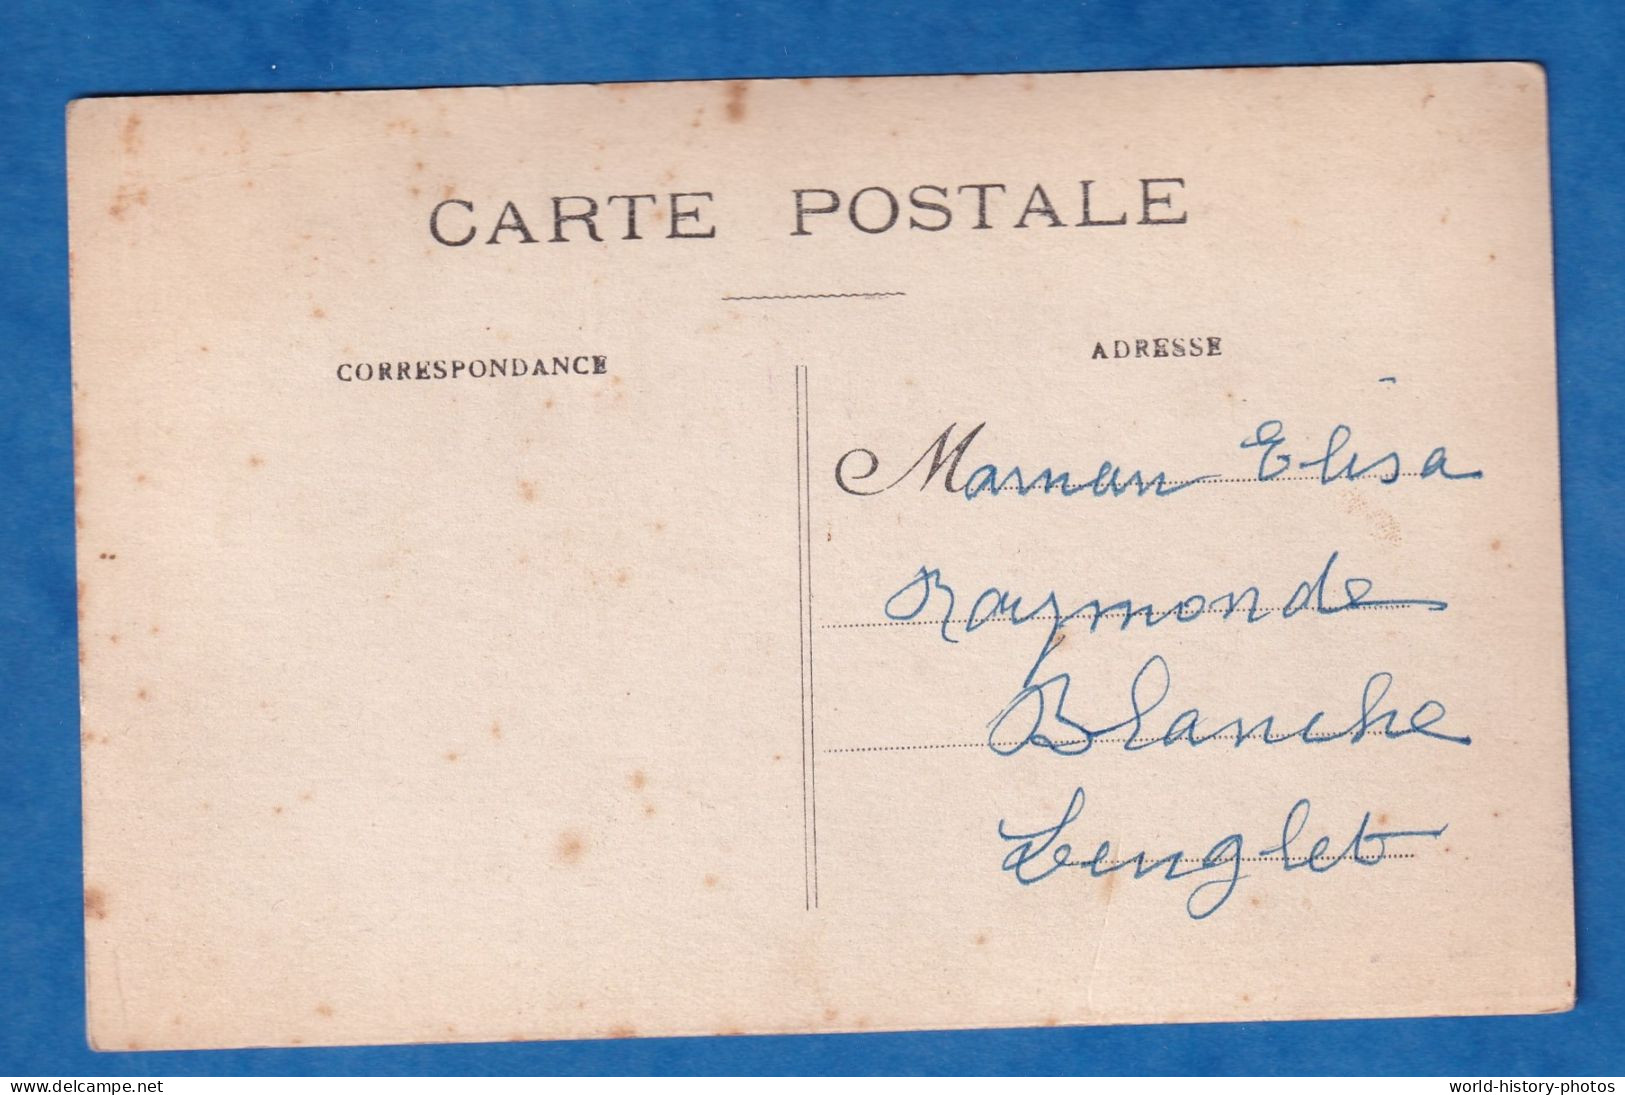 CARTE POSTALE
CORRESPONDANCE
ADRESSE
Maman Elisa
Raymonde
Blanche
Lenglet
www.delcampe.net
world-history-photos